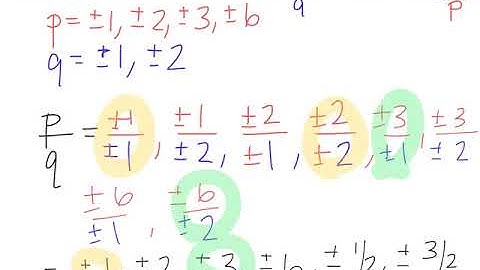 q p
p = ±1, ±2, ±3, ±6
q = ±1, ±2
p/q = ±1/±1, ±1/±2, ±2/±1, ±2/±2, ±3/±1, ±3/±2
±6/±1, ±6/±2
= ±1, ±2, ±3, ±6, ±1/2, ±3/2